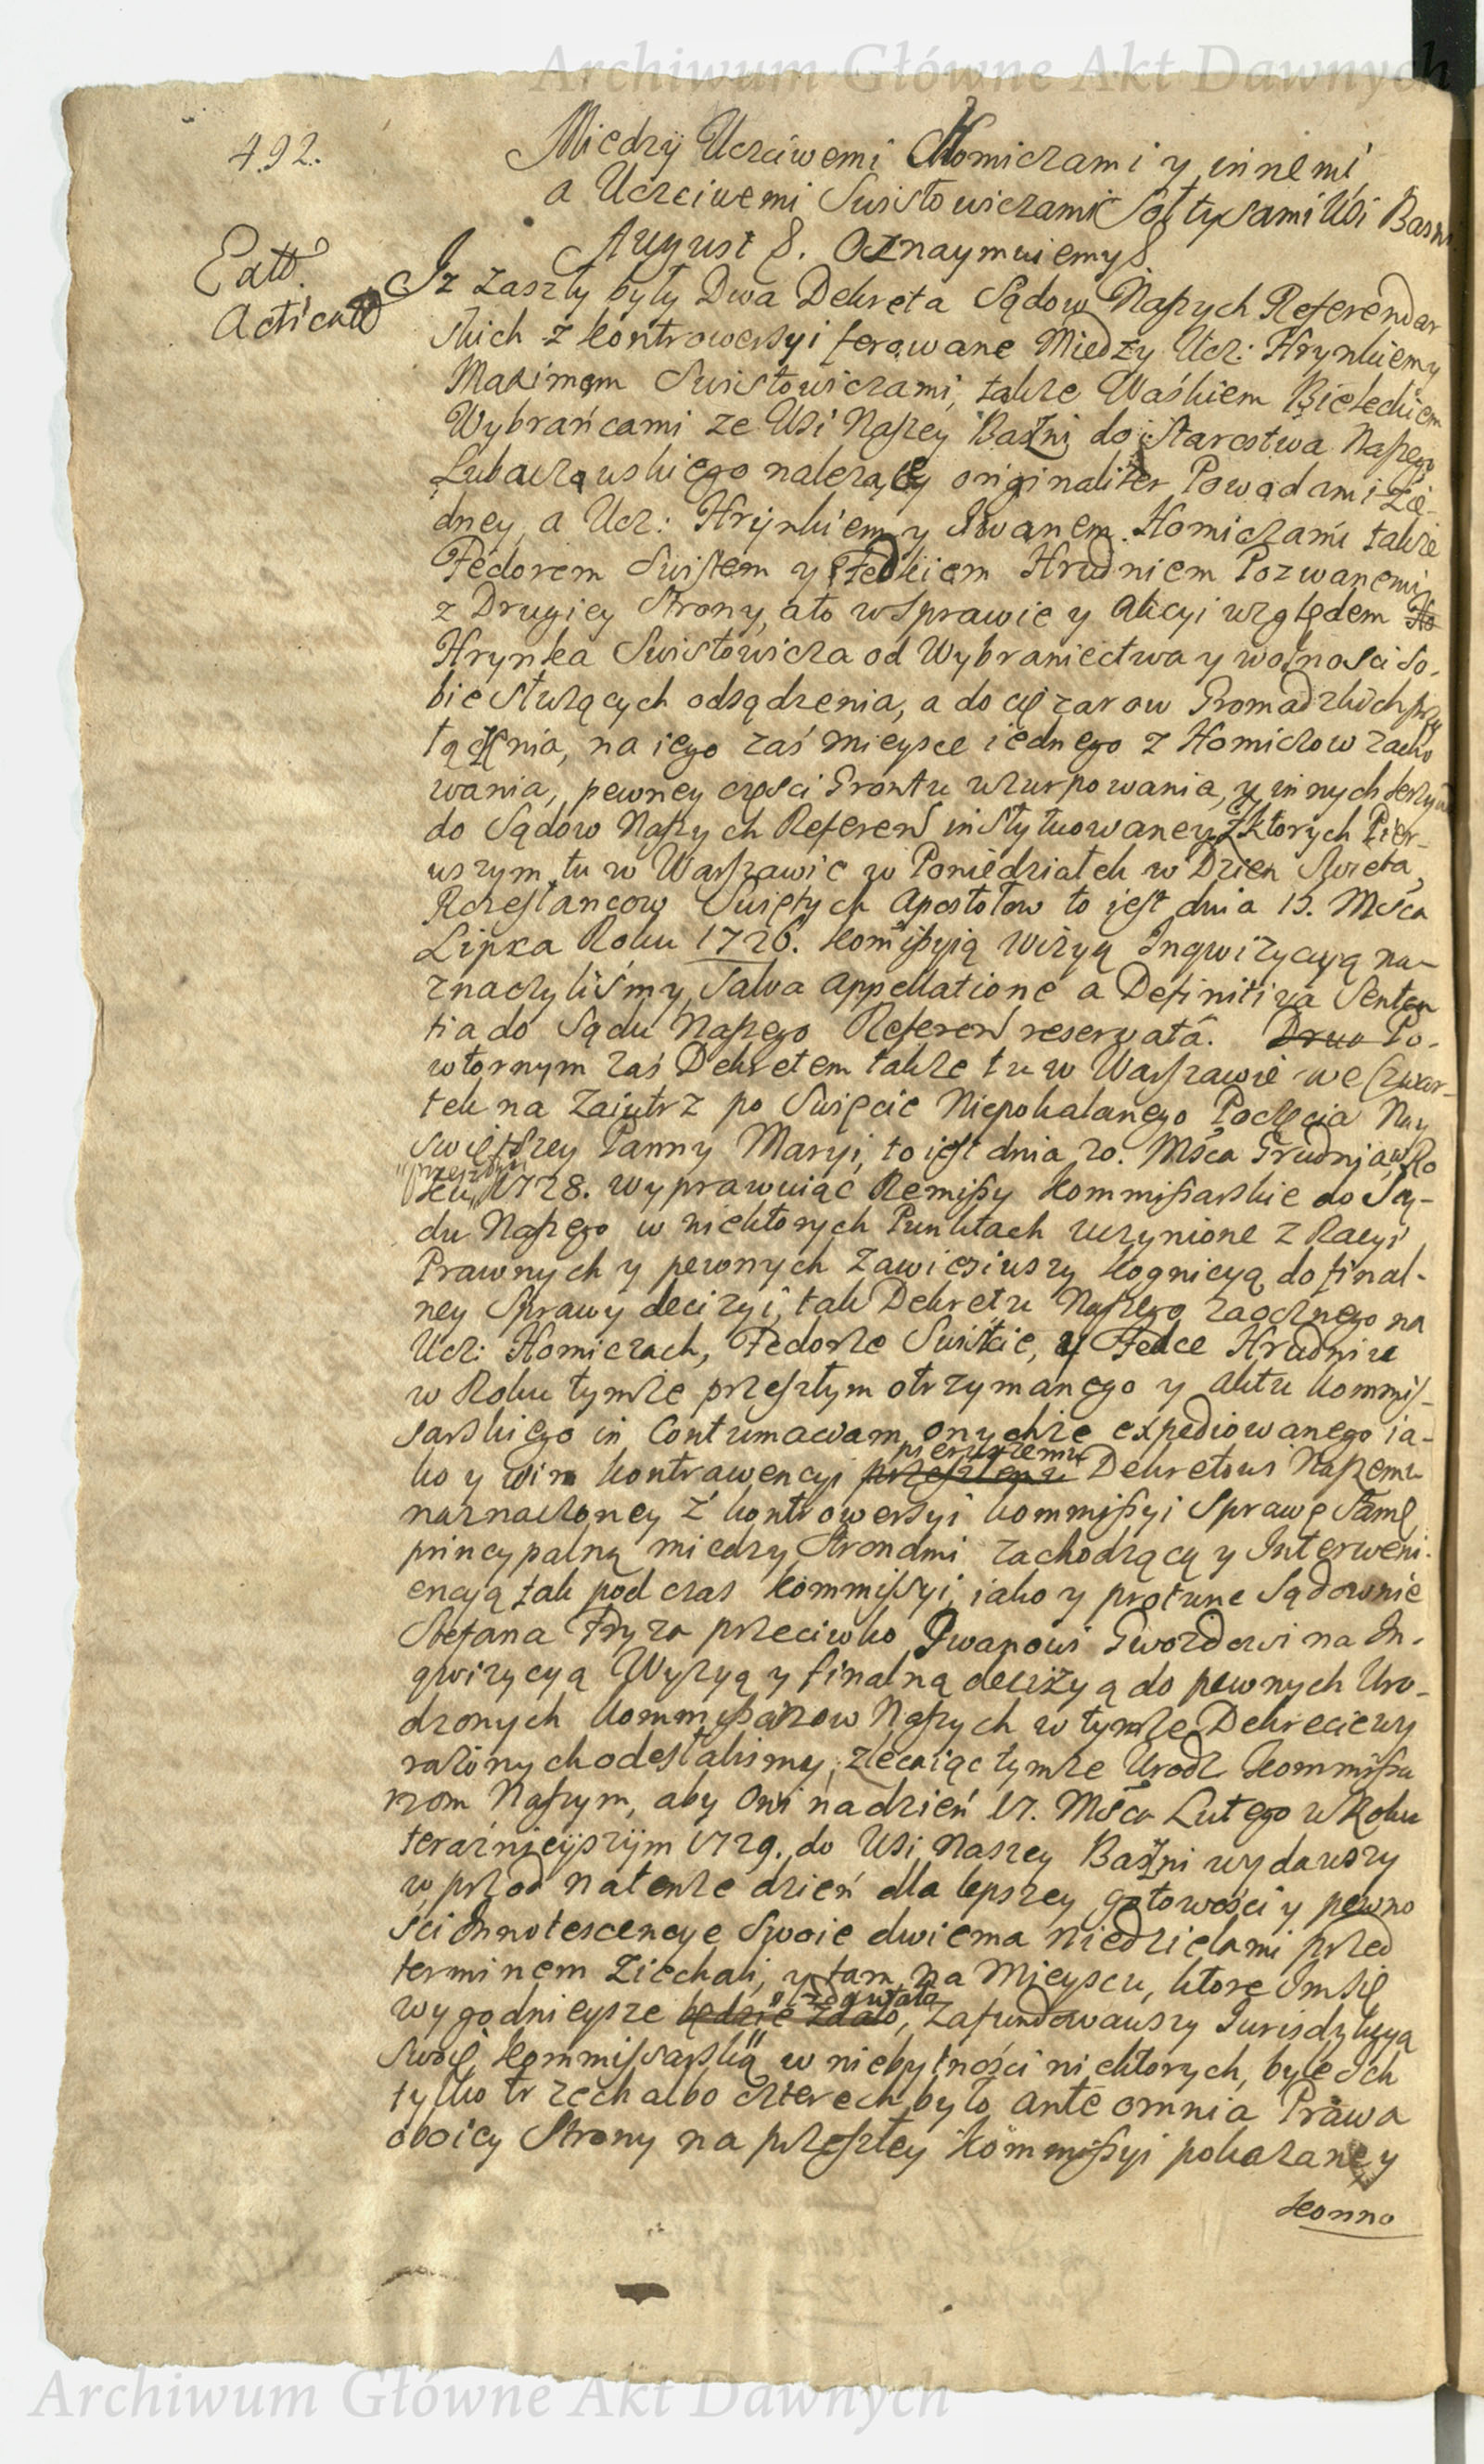 Archiwum Główne Akt Dawnych
492.
Miedzÿ Uczciwemi Chomiczami y innemi
a Uczciwemi Swistowiczami Sołtysami Wsi Baszni
August 8. Oznaymuiemy
Extt.
Acticatt
Jz zaszły były Dwa Dekreta Sądow Naszych Referendar
skich z kontrowersyi ferowane Między Ucz: Hrynkiemy
Maximem Swistowiczami, także Waśkiem Bieleckiem
Wybrańcami ze Wsi Naszey Baszni do Starostwa Naszego
Lubaczowskiego należący originaliter Powodami z ie-
dney, a Ucz: Hrÿnkiem y Iwanem Homiczami także
Fedorem Swistem y Fedkiem Hrudniem Pozwanemi
z Drugiey Strony, ato w sprawie y akcyi względem Ho
Hrynka Swistowicza od Wybraniectwa y wolności so-
bie służących odsądzenia, a do ciężarow Gromadzkich przy
łączenia, na iego zaś mieysce iednego z Homiczow zacho
wania, pewney części Gruntu uzurpowania, y innych
do Sądow Naszych Referen instytuowaney, z ktorych Pier-
wszym tu w Warszawie w Poniedziałek w Dzien Swieta
Rozesłancow Swiętych Apostołow to iest dnia 15. Msca
Lipca Roku 1726. kommissyią wizyą Inqwizycyą na-
znaczyliśmy, salva appellatione a Definitiva Senten
tia do Sądu Naszego Referen reservatâ. Druo Po-
wtornym zaś Dekretem także tu w Warszawie we Czwar-
tek na Zaiutrz po Swięcie Niepokalanego Poczęcia Nay
swiętszey Panny Maryi, to iest dnia 20. Msca Grudnia, w Ro
przeszłym
ku 1728. wyprawuiąc Remissy kommissarskie do Są-
du Naszego w niektorych Punktach uczynione z Racyi
Prawnych y pewnych zawiesiwszy kognicyą do final-
ney Sprawy decizyi, tak Dekretu Naszego zaocznego na
Ucz: Homiczach, Fedorze Swiście, y Fedce Hrudniu
w Roku tymże przeszłym otrzymanego y aktu kommis-
sarskiego in Contumaciam onychże expediowanego ia-
pierwszemu
ko y win kontrawencyi przeszłemu Dekretowi Naszemu
naznaczoney z kontrowersyi kommissyi Sprawę samę
pryncypalną miedzy Stronami zachodzącą y Interweni-
encyą tak pod czas kommissyi, iako y protunc Sądownie
Stefana Fryza przeciwko Iwanowi Gwozdowi na In-
qwizycyą Wyzyą y finalną decizyą do pewnych Uro-
dzonych kommissarzow Naszych w tymże Dekrecie wy
rażonych odesłalismy, zlecaiąc tymże Urodz kommissa
rzom Naszym, aby oni na dzień 17. Msca Lutego w Roku
teraznieÿszÿm 1729. do Wsi Naszey Baszni wydawszy
w przod na tenże dzień dla lepszey gotowości y pewno
ści Innotescencye Swoie dwiema Niedzielami przed
terminem ziechali, y tam na Mieyscu, ktore Im się
wygodnieysze będzie zdało, zafundowawszy Jurisdykcyą
swoię kommissarską w niebytności niektorych, byle ich
tylko trzech albo czterech było ante omnia Prawa
oboiey Strony na przeszłey kommissyi pokazaney
konno
Archiwum Główne Akt Dawnych